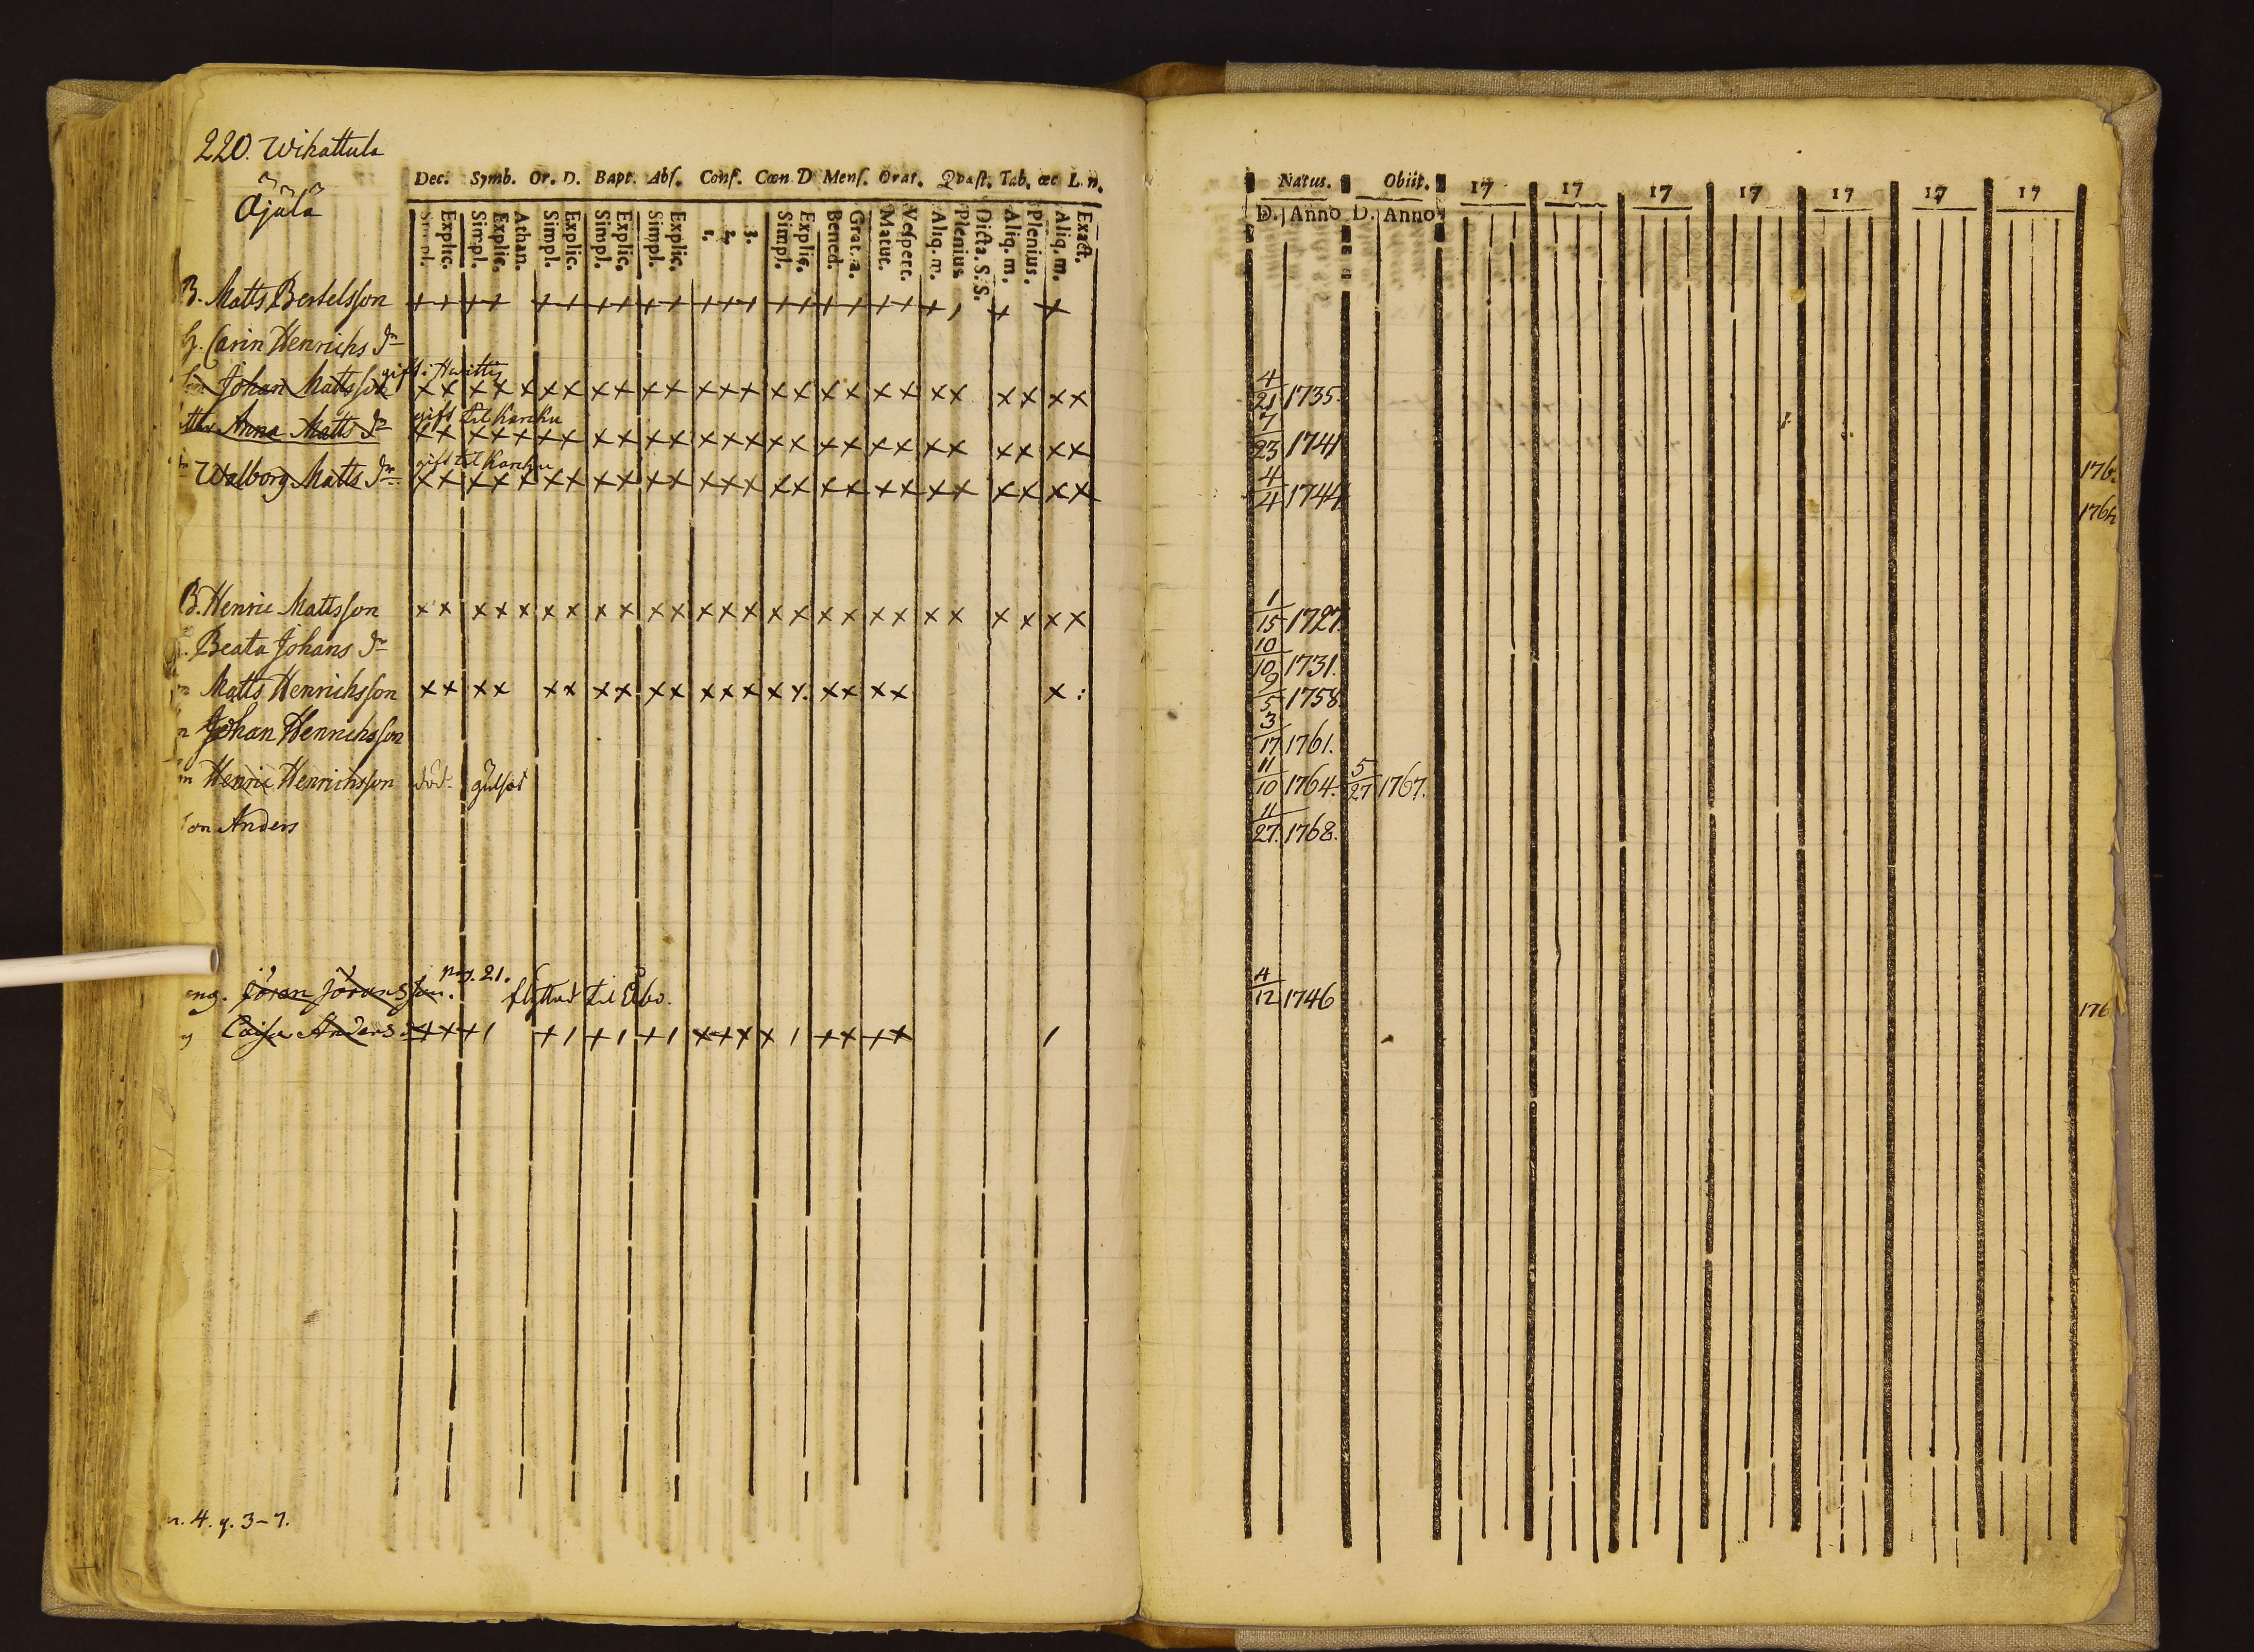 220. Wikattula
Äjälä
Dec. Symb. Or. D. Bapt. Abſ. Conf. Cœn. D Menſ. Orat. Qvæſt. Tab. œc L. n.
Simpl. Explic. Simpl. Explic. Athan. Simpl. Explic. Simpl. Explic. Simpl. Explic. 1. 2. 3. Simpl. Explic. Bened. Grat. a. Matut. Veſpert. Aliq. m. Plenius. Dicta. S. S. Aliq. m. Plenius. Aliq. m. Exact.
B. Matts Bertelsson
H. Carin Henrichs dr
Son Johan Mattsson gift i
Anna Matts dr gift til Karcku
Walborg Matts dr gift til Karcku
B. Henric Mattsson
Beata Johans dr
Matts Henrichsson
Johan Henrichsson
Henric Henrichsson död gulsot
Son Anders
Jöran Jöransson. pag. 21. flyttad til Åbo.
Caisa Anders
n. 4. g. 3-7.
Natus. Obiit. 17 17 17 17 17 17 17
D. Anno D. Anno
4/21 1735.
7/23 1741
4/4 1744
176
176
1/15 1727.
10/10 1731.
9/5 1758
3/17 1761.
11/10 1764. 5/27 1767.
11/27. 1768.
4/12 1746
176